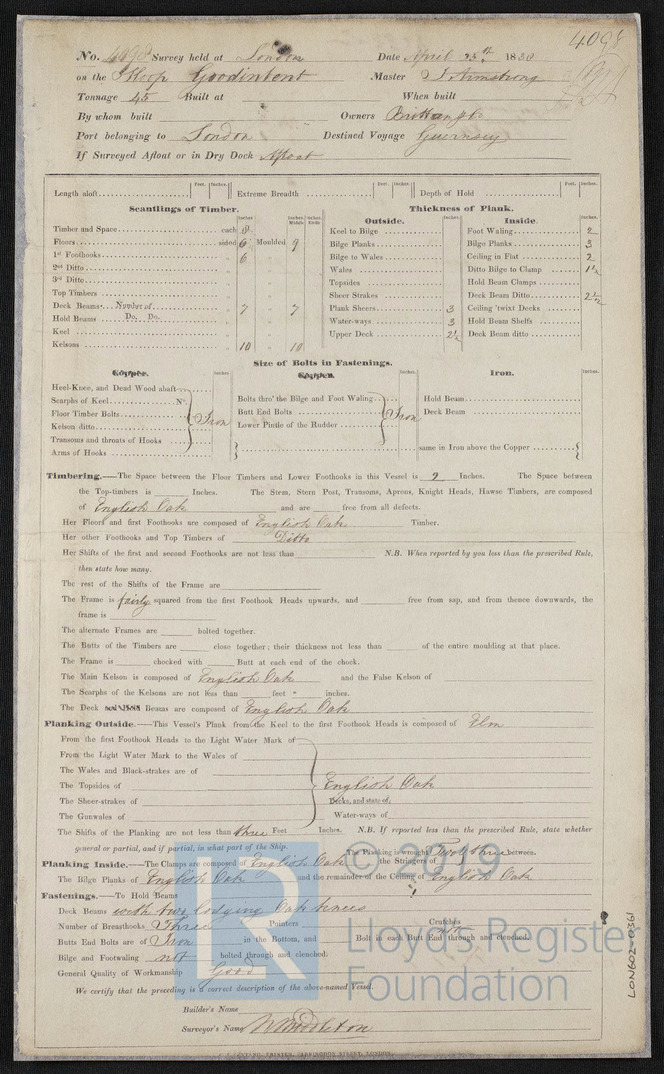 4098
No. 4098 Survey held at London Date April 25th 1838
on the Sloop Goodintent Master J. Armstrong
Tonnage 45 Built at When built
By whom built Owners
Port belonging to London Destined Voyage Guernsey
If Surveyed Afloat or in Dry Dock Afloat
Length aloft Feet. Inches. Extreme Breadth Feet. Inches. Depth of Hold Feet. Inches.
Scantlings of Timber. Thickness of Plank.
Inches Inches. Middle Inches. Ends Outside. Inches. Inside. Inches.
Timber and Space each 8 Keel to Bilge Foot Waling 2
Floors sided 6 Moulded 9 Bilge Planks Bilge Planks 3
1st Foothooks 6 Bilge to Wales Ceiling in Flat 2
2nd Ditto Wales Ditto Bilge to Clamp 1½
3rd Ditto Topsides Hold Beam Clamps
Top Timbers Sheer Strakes Deck Beam Ditto 2½
Deck Beams Number of 7 7 Plank Sheers 3 Ceiling 'twixt Decks
Hold Beams Do. Do. Water-ways 3 Hold Beam Shelfs
Keel Upper Deck 2½ Deck Beam ditto
Kelsons 10 10
Size of Bolts in Fastenings.
Copper. Copper. Iron.
Heel-Knee, and Dead Wood abaft Inches Inches. Inches.
Scarphs of Keel No. Bolts thro' the Bilge and Foot Waling Hold Beam
Floor Timber Bolts Iron Butt End Bolts Iron Deck Beam
Kelson ditto Lower Pintle of the Rudder
Transoms and throats of Hooks
Arms of Hooks same in Iron above the Copper
Timbering.—The Space between the Floor Timbers and Lower Foothooks in this Vessel is 2 Inches. The Space between
the Top-timbers is Inches. The Stem, Stern Post, Transoms, Aprons, Knight Heads, Hawse Timbers, are composed
of English Oak and are free from all defects.
Her Floors and first Foothooks are composed of English Oak Timber.
Her other Foothooks and Top Timbers of Ditto
Her Shifts of the first and second Foothooks are not less than N.B. When reported by you less than the prescribed Rule,
then state how many.
The rest of the Shifts of the Frame are
The Frame is fairly squared from the first Foothook Heads upwards, and free from sap, and from thence downwards, the
frame is
The alternate Frames are bolted together.
The Butts of the Timbers are close together; their thickness not less than of the entire moulding at that place.
The Frame is chocked with Butt at each end of the chock.
The Main Kelson is composed of English Oak and the False Kelson of
The Scarphs of the Kelsons are not less than feet " inches.
The Deck Beams are composed of English Oak
Planking Outside.—This Vessel's Plank from the Keel to the first Foothook Heads is composed of Elm
From the first Foothook Heads to the Light Water Mark of
From the Light Water Mark to the Wales of
The Wales and Black-strakes are of
The Topsides of English Oak
The Sheer-strakes of Decks, and state of,
The Gunwales of Water-ways of
The Shifts of the Planking are not less than three Feet Inches. N.B. If reported less than the prescribed Rule, state whether
general or partial, and if partial, in what part of the Ship. The Planking is wrought Two & three between.
Planking Inside.—The Clamps are composed of English Oak the Stringers of
The Bilge Planks of English Oak and the remainder of the Ceiling of English Oak
Fastenings.—To Hold Beams
Deck Beams with two lodging Oak knees
Number of Breasthooks Three Pointers Crutches
Butts End Bolts are of Iron in the Bottom, and not Bolt in each Butt End through and clenched.
Bilge and Footwaling not bolted through and clenched.
General Quality of Workmanship Good
We certify that the preceding is a correct description of the above-named Vessel.
Builder's Name
Surveyor's Name W Middleton
© 2019
LR
Lloyd's Register
Foundation
LON602-0361